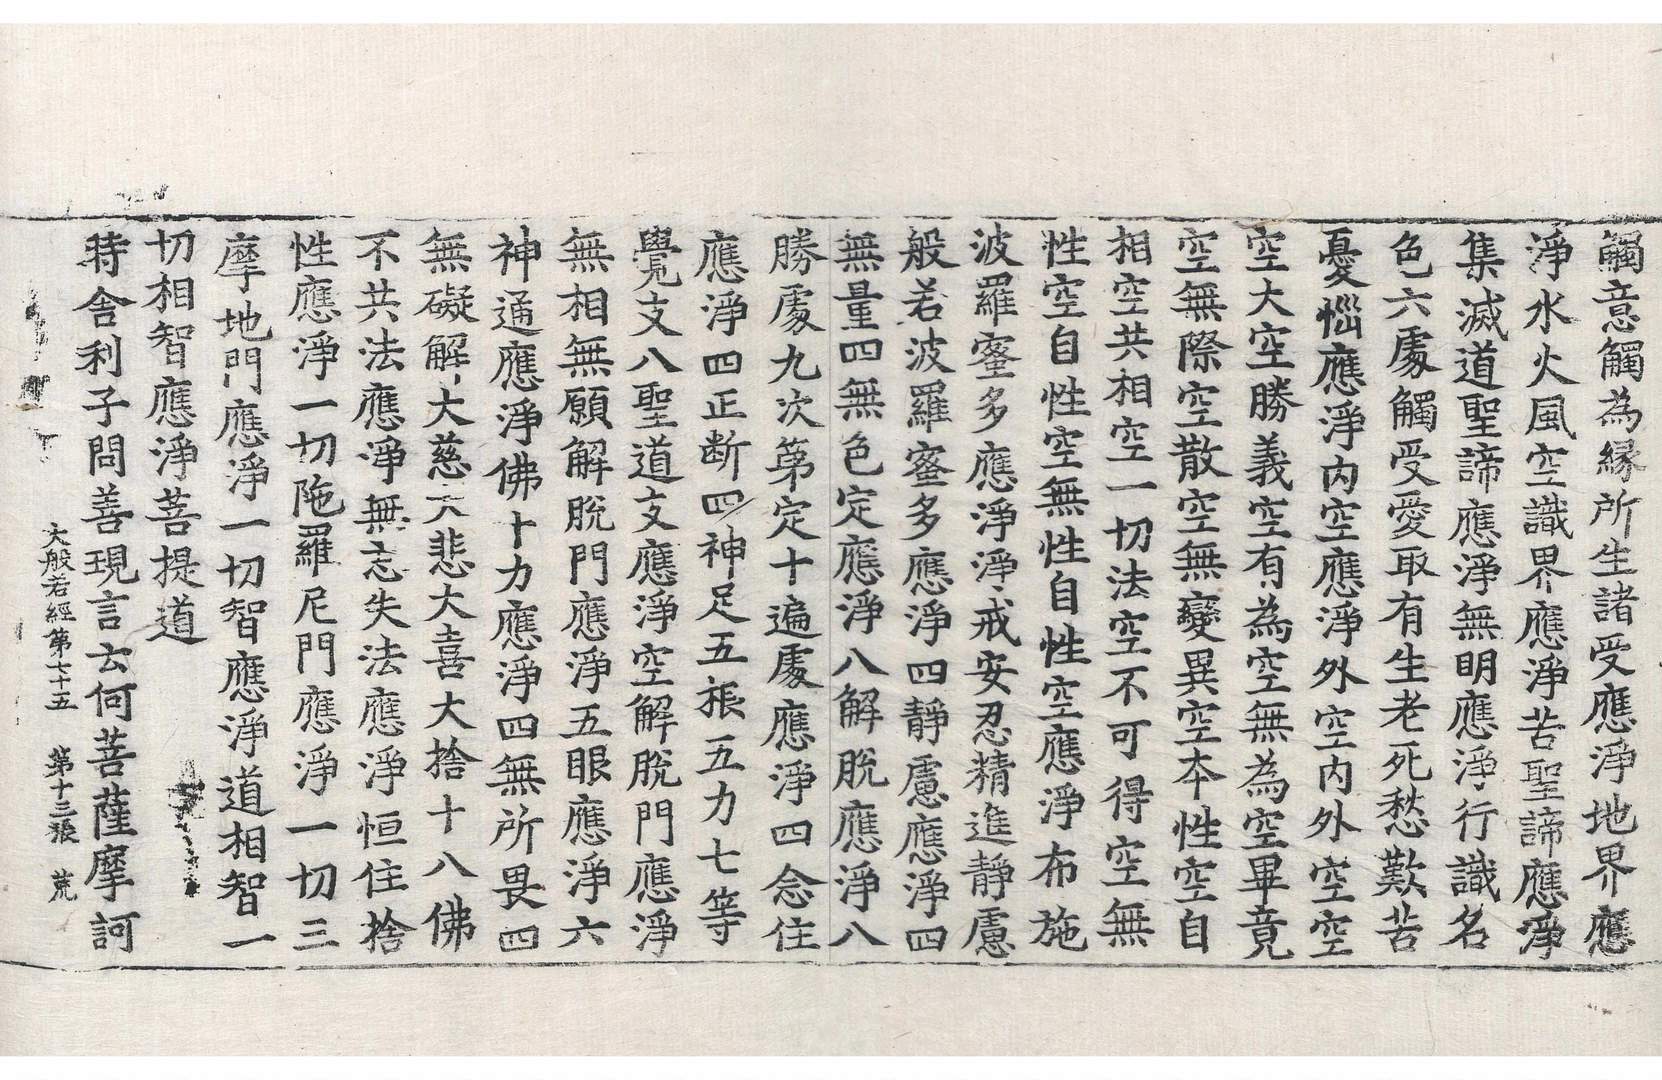 觸意觸為縁所生諸受應淨地界應
淨水火風空識界應淨苦聖諦應淨
集滅道聖諦應淨無明應淨行識名
色六處觸受愛取有生老死愁歎苦
憂惱應淨內空應淨外空內外空空
空大空勝義空有為空無為空畢竟
空無際空散空無變異空本性空自
相空共相空一切法空不可得空無
性空自性空無性自性空應淨布施
波羅蜜多應淨淨戒安忍精進靜慮
般若波羅蜜多應淨四靜慮應淨四
無量四無色定應淨八解脫應淨八
勝處九次第定十遍處應淨四念住
應淨四正断四神足五根五力七等
覺支八聖道支應淨空解脫門應淨
無相無願解脫門應淨五眼應淨六
神通應淨佛十力應淨四無所畏四
無礙解大慈大悲大喜大捨十八佛
不共法應淨無忘失法應淨恒住捨
性應淨一切陁羅尼門應淨一切三
摩地門應淨一切智應淨道相智一
切相智應淨菩提道
時舍利子問善現言云何菩薩摩訶
大般若經第七十五 第十三張 荒